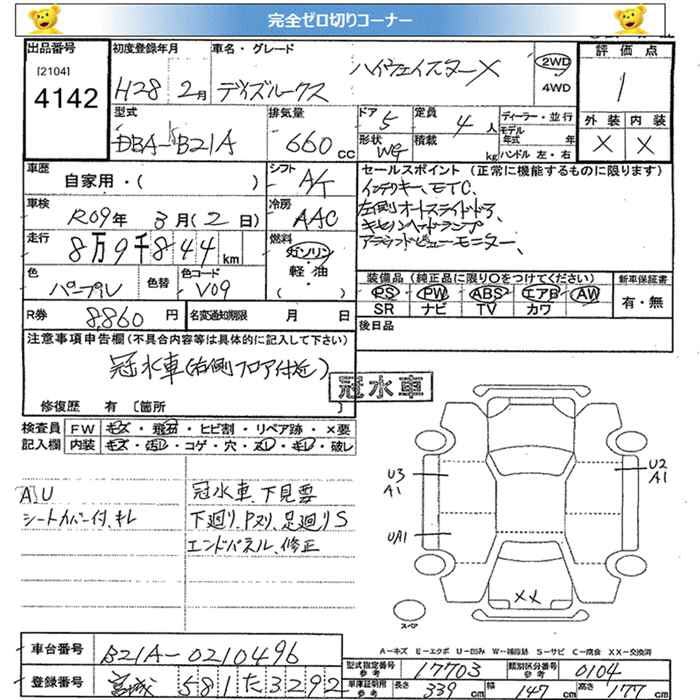 完全ゼロ切りコーナー
出品番号 [2104] 4142
初度登録年月 H28 2月
車名・グレード デイズルークス ハイウェイスターX
2WD 4WD
評価点 1
外装 内装
X X
型式 DBA-B21A
排気量 660cc
ドア 5
形状 WG
定員 4人
積載 kg
ディーラー・並行
モデル年式 年
ハンドル 左・右
車歴 自家用・( )
シフト A/T
セールスポイント (正常に機能するものに限ります)
インテリキー、ETC、
左側オートスライドドア、
キセノンヘッドランプ
アラウンドビューモニター、
車検 R09年 3月(2日)
冷房 AAC
走行 8万9千844km
燃料 ガソリン・軽油・( )
色 パープル 色替
色コード V09
装備品 (純正品に限り○をつけてください)
PS PW ABS エアB AW
SR ナビ TV カワ
新車保証書 有・無
R券 8,860円
名変通知期限 月 日
後日品
注意事項申告欄(不具合内容等は具体的に記入して下さい)
冠水車(右側フロア付近)
冠水車
修復歴 有 〔箇所 〕
検査員記入欄
FW キズ・飛石・ヒビ割・リペア跡・×要
内装 キズ・汚レ・コゲ・穴・スレ・キレ・破レ
AU
シートカバー付、キレ
冠水車、下見要
下廻り、Pヌリ、足廻りS
エンドパネル、修正
U3 A1
U2 A1
UA1
XX
スペア
A-キズ E-エクボ U-凹み W-補修跡 S-サビ C-腐食 XX-交換済
車台番号 B21A-0210496
型式指定番号 参考 17703
類別区分番号 参考 0104
登録番号 宮城 581 た 3292
車庫証明用 参考 長さ 339cm 幅 147cm 高さ 177cm